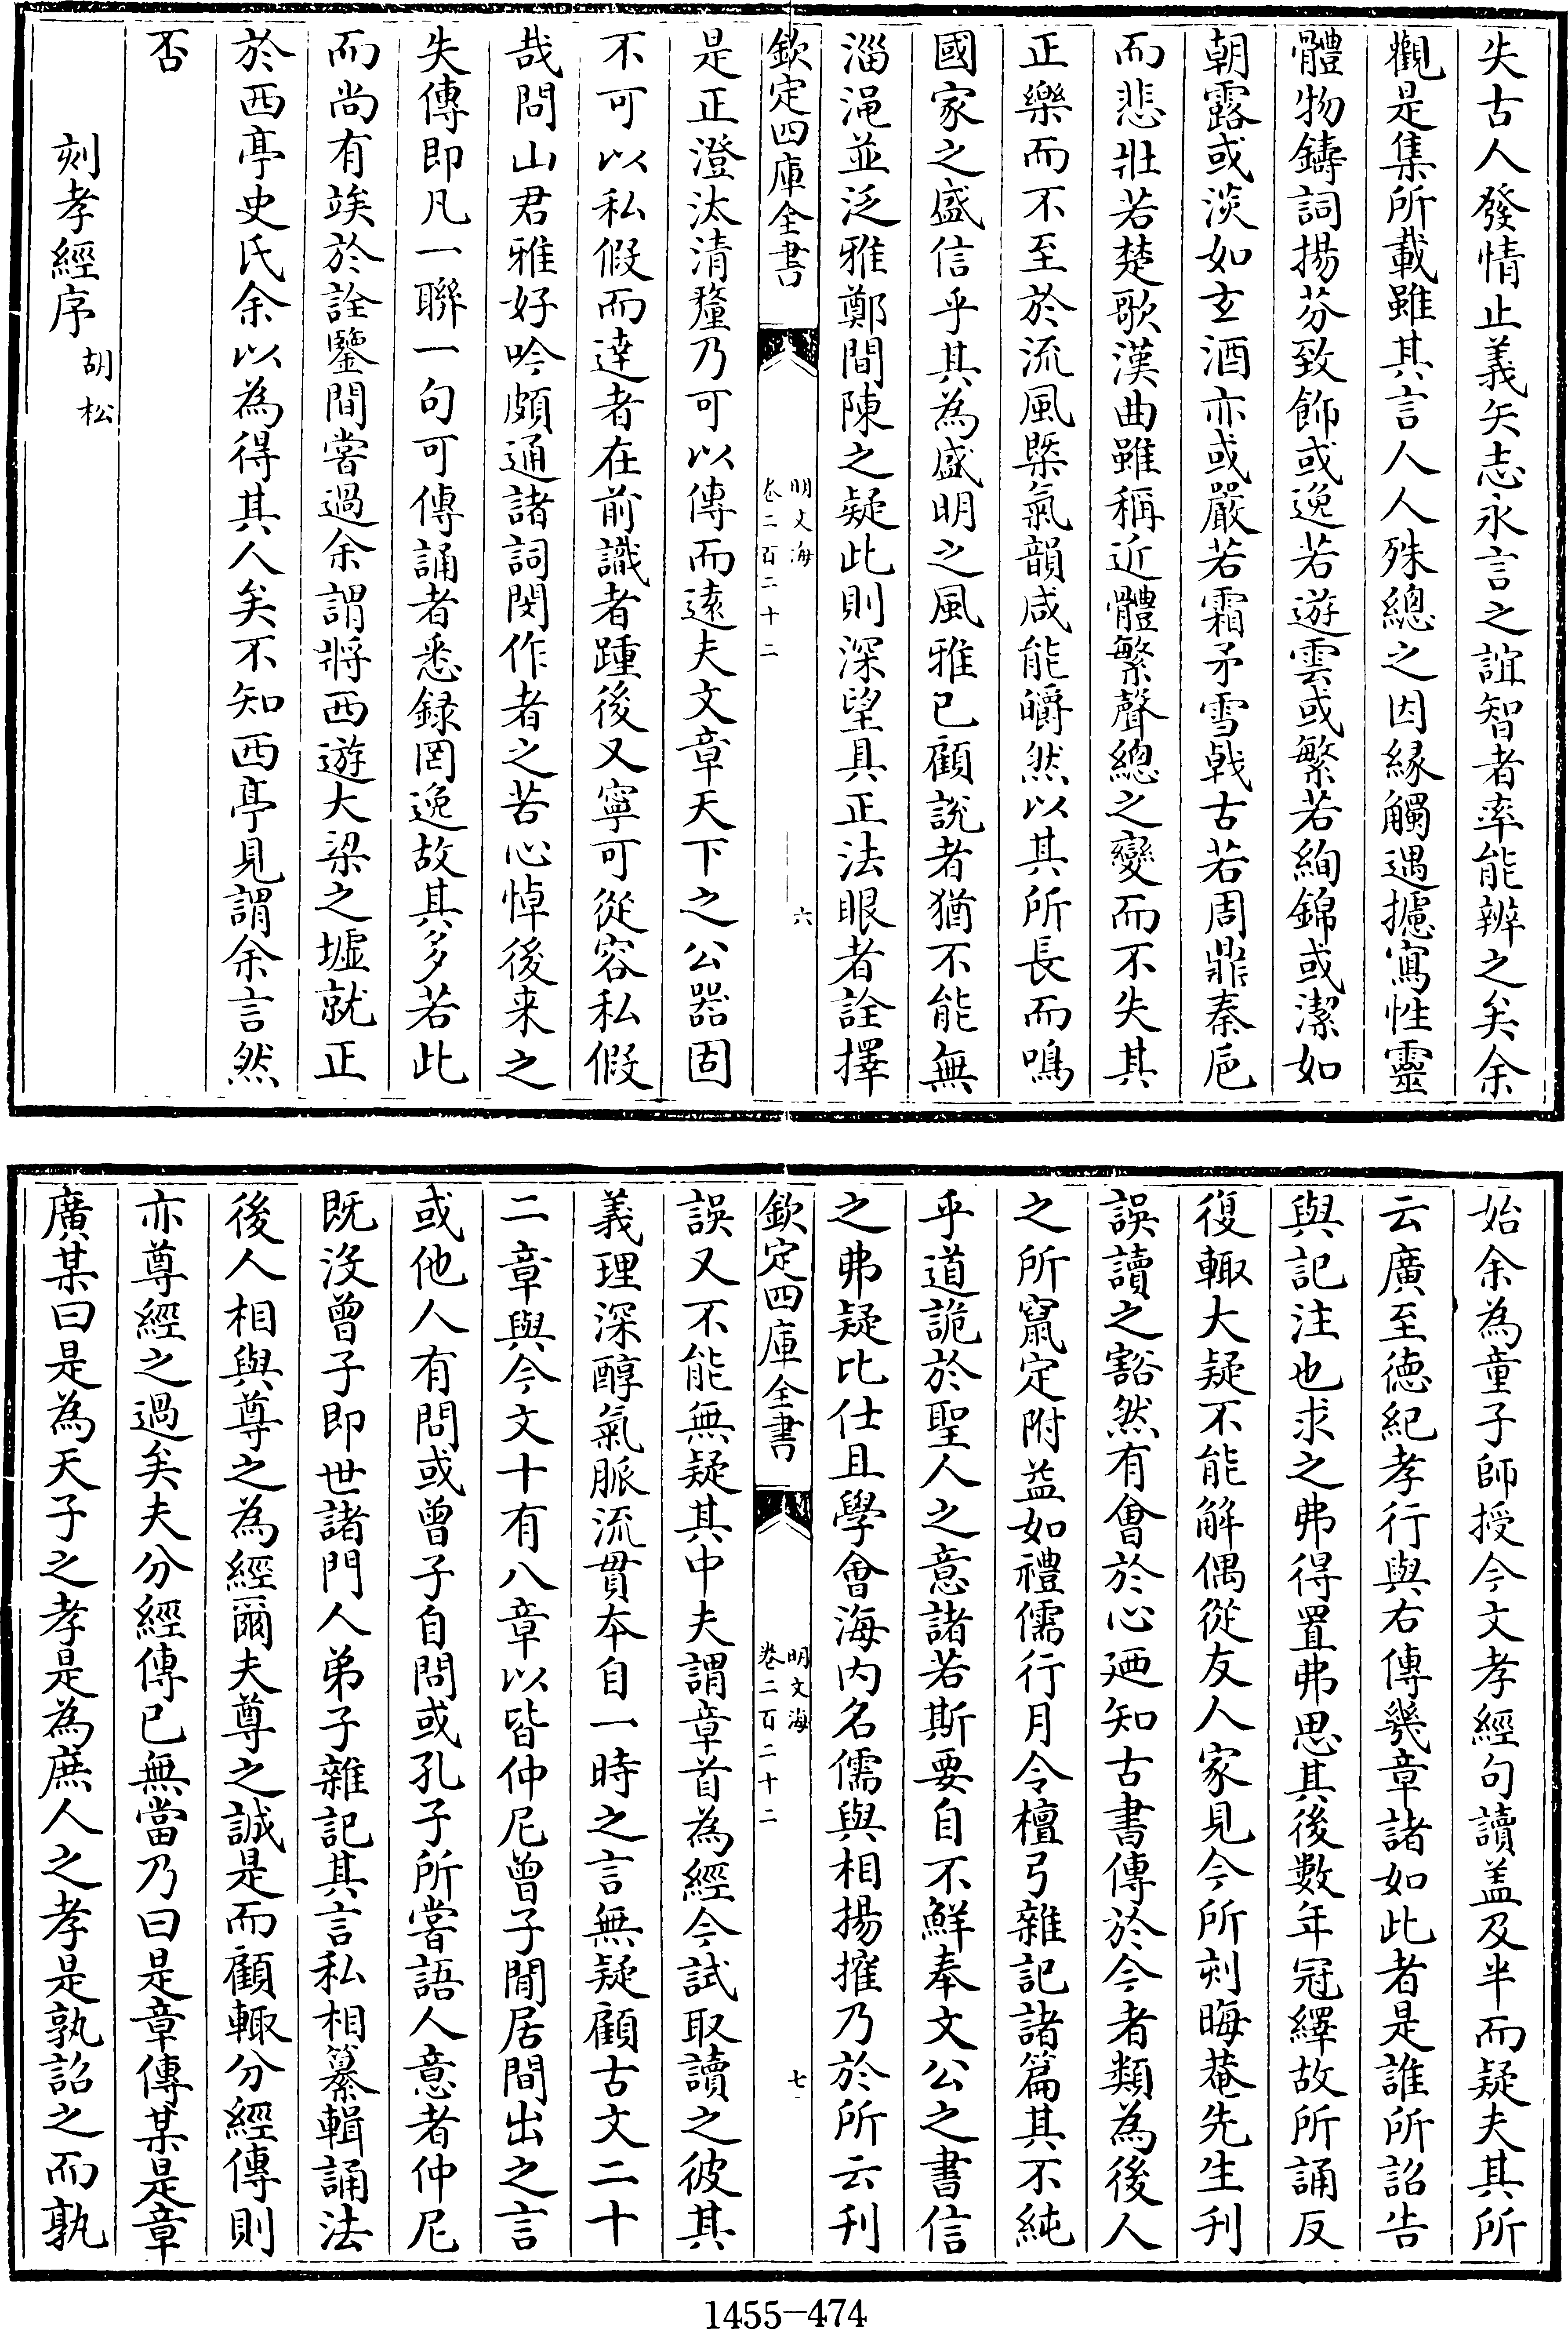 失古人發情止義矢志永言之誼智者率能辨之矣余
觀是集所載雖其言人人殊總之因緣觸遇攄寫性靈
體物鑄詞揚芬致飾或逸若遊雲或繁若絢錦或潔如
朝露或淡如玄酒亦或嚴若霜矛雪戟古若周鼎秦巵
而悲壯若楚歌漢曲雖稱近體繁聲總之變而不失其
正樂而不至於流風槩氣韻咸能皭然以其所長而鳴
國家之盛信乎其為盛明之風雅已顧說者猶不能無
淄澠並泛雅鄭間陳之疑此則深望具正法眼者詮擇
欽定四庫全書
明文海
卷二百二十二
六
是正澄汰清釐乃可以傳而遠夫文章天下之公器固
不可以私假而達者在前識者踵後又寧可從容私假
哉問山君雅好吟頗通諸詞閔作者之苦心悼後来之
失傳即凡一聯一句可傳誦者悉録罔逸故其多若此
而尚有竢於詮鑒間嘗過余謂將西遊大梁之墟就正
於西亭史氏余以為得其人矣不知西亭見謂余言然
否
刻孝經序 胡松
始余為童子師授今文孝經句讀盖及半而疑夫其所
云廣至徳紀孝行與右傳幾章諸如此者是誰所詔告
與記注也求之弗得置弗思其後數年冠繹故所誦反
復輙大疑不能解偶從友人家見今所刻晦菴先生刋
誤讀之豁然有會於心廼知古書傳於今者類為後人
之所竄定附益如禮儒行月令檀弓雜記諸篇其不純
乎道詭於聖人之意諸若斯要自不鮮奉文公之書信
之弗疑比仕且學會海内名儒與相揚搉乃於所云刋
欽定四庫全書
明文海
卷二百二十二
七
誤又不能無疑其中夫謂章首為經今試取讀之彼其
義理深醇氣脈流貫本自一時之言無疑顧古文二十
二章與今文十有八章以皆仲尼曾子閒居間出之言
或他人有問或曾子自問或孔子所嘗語人意者仲尼
既沒曾子即世諸門人弟子雜記其言私相纂輯誦法
後人相與尊之為經爾夫尊之誠是而顧輙分經傳則
亦尊經之過矣夫分經傳已無當乃曰是章傳某是章
廣某曰是為天子之孝是為庶人之孝是孰詔之而孰
1455-474